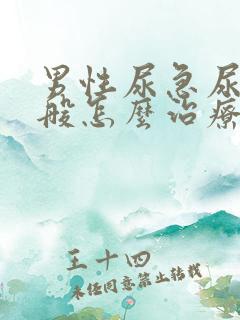 男性尿急尿
般怎麼治療
王十四
未经同意禁止转载